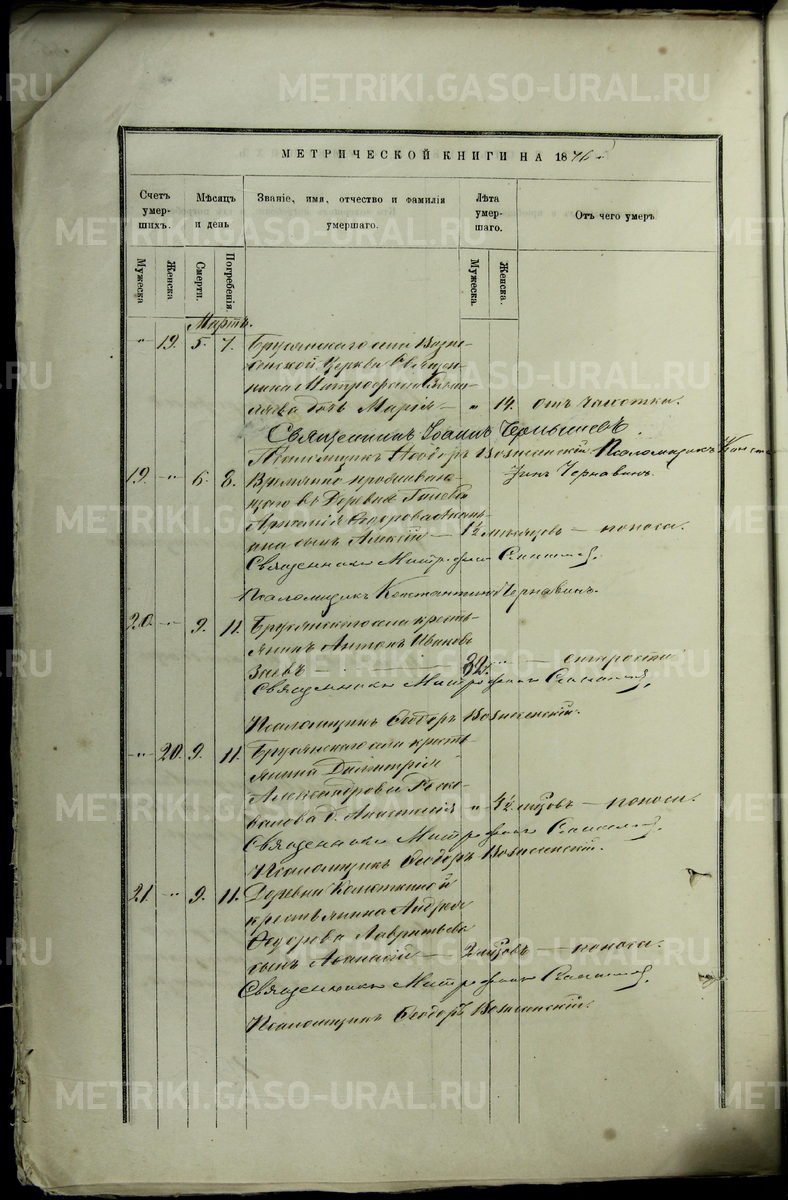 METRIKI.GASO-URAL.RU
МЕТРИЧЕСКОЙ КНИГИ НА 1876
Счетъ умер- шихъ.
Мѣсяцъ и день
Званіе, имя, отчество и фамилія умершаго.
Лѣта умер- шаго.
Отъ чего умеръ
Мужеска
Женска
Смерти.
Погребенія.
Мужеска
Женска
Мартъ.
" 19. 5. 7. Бруянскаго села Возне-
сенской Церкви Священ-
ника Митрофана
дочь Марія — " 14. отъ чахотки.
Священникъ Іоаннъ
Псаломщикъ Ѳеодоръ Вознесенскій. Псаломщикъ Конста-
нтинъ Чернавинъ.
19. — " 6. 8. Временно проживаю-
щаго въ Деревнѣ
Ѳедорова
сынъ Алексій — 1½ мѣсяцовъ — поноса.
Священникъ Митрофанъ
Псаломщикъ Константинъ Чернавинъ.
20. — " 9. 11. Бруянскаго села кресть-
янинъ Антонъ Ивановъ
— 82. " — старости
Священникъ Митрофанъ
Псаломщикъ Ѳеодоръ Вознесенскій.
— " 20. 9. 11. Бруянскаго села кресть-
янина Димитрія
Александрова
д. Анастасія " 4½ мцовъ — поноса.
Священникъ Митрофанъ
Псаломщикъ Ѳеодоръ Вознесенскій.
21. — " 9. 11. Деревни
крестьянина Андрея
Ѳедорова Лаврентьева
сынъ Аѳанасій — 2 мцовъ — поноса.
Священникъ Митрофанъ
Псаломщикъ Ѳеодоръ Вознесенскій.